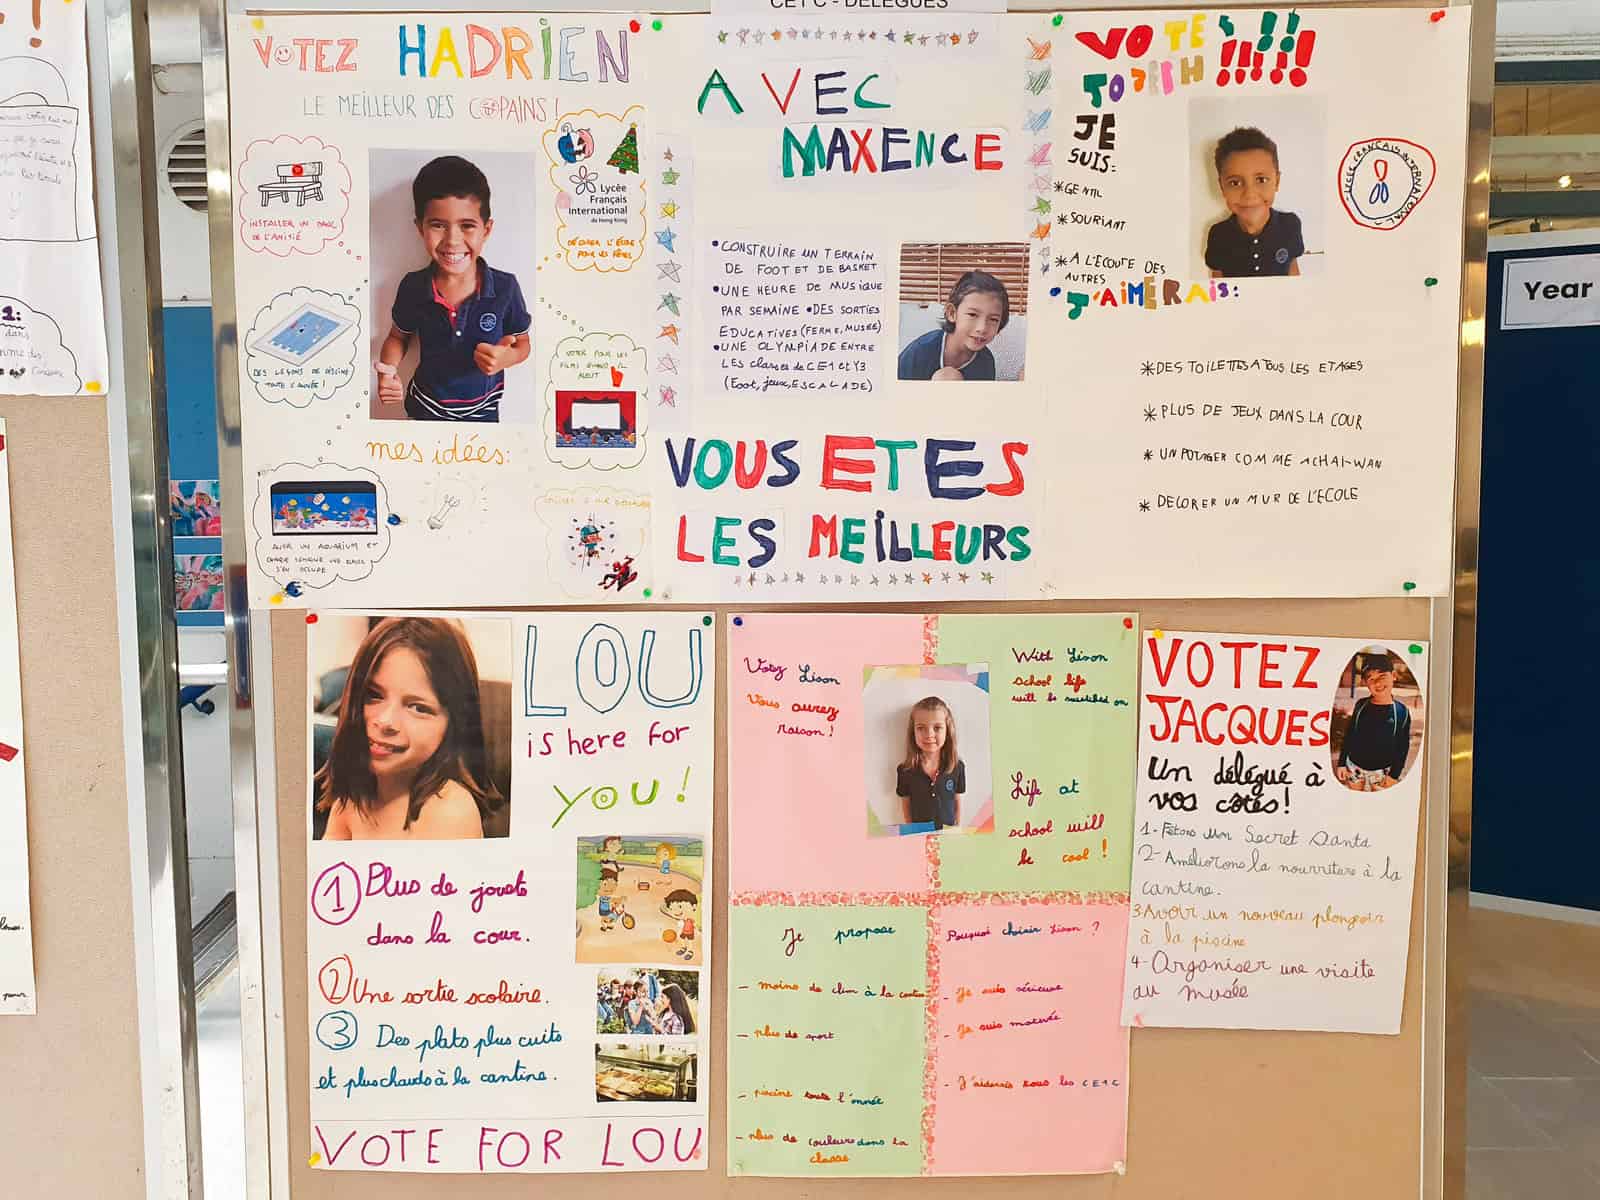 CE1 C - DÉLÉGUÉS
VOTEZ HADRIEN
LE MEILLEUR DES COPAINS !
INSTALLER UN BANC
DE L'AMITIÉ
DES LEÇONS DE PISCINE
TOUTE L'ANNÉE !
AVOIR UN AQUARIUM ET
CHAQUE SEMAINE UNE CLASSE
S'EN OCCUPE
Lycée
Français
International
de Hong Kong
DÉCORER L'ÉCOLE
POUR LES FÊTES
VOTER POUR LES
FILMS QUAND IL
PLEUT
mes idées:
AVEC
MAXENCE
•CONSTRUIRE UN TERRAIN
DE FOOT ET DE BASKET
•UNE HEURE DE MUSIQUE
PAR SEMAINE •DES SORTIES
EDUCATIVES (FERME, MUSÉE)
•UNE OLYMPIADE ENTRE
LES CLASSES DE CE1 et Y3
(Foot, jeux, ESCALADE)
VOUS ETES
LES MEILLEURS
VOTE
JOSEPH
JE
SUIS:
*GENTIL
*SOURIANT
*A L'ECOUTE DES
AUTRES
LYCEE FRANCAIS INTERNATIONAL
J'AIMERAIS:
*DES TOILETTES A TOUS LES ETAGES
*PLUS DE JEUX DANS LA COUR
*UN POTAGER COMME A CHAI-WAN
*DECORER UN MUR DE L'ECOLE
LOU
is here for
YOU!
1 Plus de jouets
dans la cour.
2 Une sortie scolaire.
3 Des plats plus cuits
et plus chauds à la cantine.
VOTE FOR LOU
Votez Lison
Vous aurez
raison !
With Lison
school life
will be switched on
Life at
school will
be cool !
Je propose
- moins de clim à la cantine
- plus de sport
- piscine toute l'année
- plus de couleurs dans la
classe
Pourquoi choisir Lison ?
- Je suis sérieuse
- Je suis motivée
- J'aiderais tous les CE1C
VOTEZ
JACQUES
Un délégué à
vos côtés!
1- Fêtons un Secret Santa
2- Améliorons la nourriture à la
cantine.
3- Avoir un nouveau plongeoir
à la piscine
4- Organiser une visite
au musée
Year